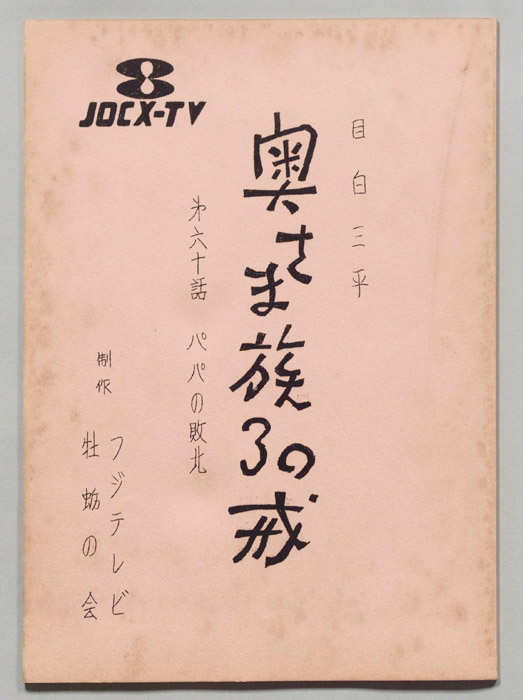 JOCX-TV
目白三平
奥さま族3の戒
第六十話 パパの敗北
制作
フジテレビ
牡蛎の会